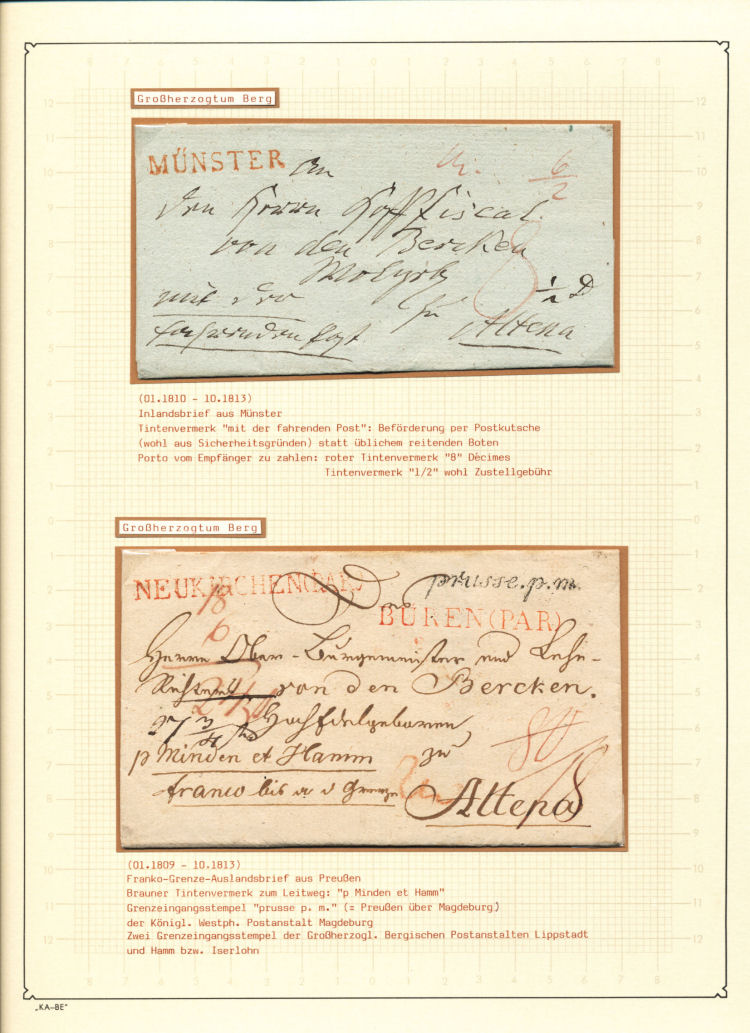 Großherzogtum Berg
MÜNSTER An
den Herrn Hoff Fiscal
von den Bercken
6/2
8
1/2 D
mit der zu Altena
fahrenden Post
(01.1810 - 10.1813)
Inlandsbrief aus Münster
Tintenvermerk "mit der fahrenden Post": Beförderung per Postkutsche
(wohl aus Sicherheitsgründen) statt üblichem reitenden Boten
Porto vom Empfänger zu zahlen: roter Tintenvermerk "8" Décimes
Tintenvermerk "1/2" wohl Zustellgebühr
Großherzogtum Berg
prusse.p.m.
NEUKIRCHEN(PAR)
BÜREN(PAR)
18
6
Herrn Ober-Bürgemeister und Lehn-
Richter von den Bercken.
Hochedelgeboren
p Minden et Hamm zu
franco bis a d Grenze Altena
(01.1809 - 10.1813)
Franko-Grenze-Auslandsbrief aus Preußen
Brauner Tintenvermerk zum Leitweg: "p Minden et Hamm"
Grenzeingangsstempel "prusse p. m." (= Preußen über Magdeburg)
der Königl. Westph. Postanstalt Magdeburg
Zwei Grenzeingangsstempel der Großherzogl. Bergischen Postanstalten Lippstadt
und Hamm bzw. Iserlohn
„KA–BE"